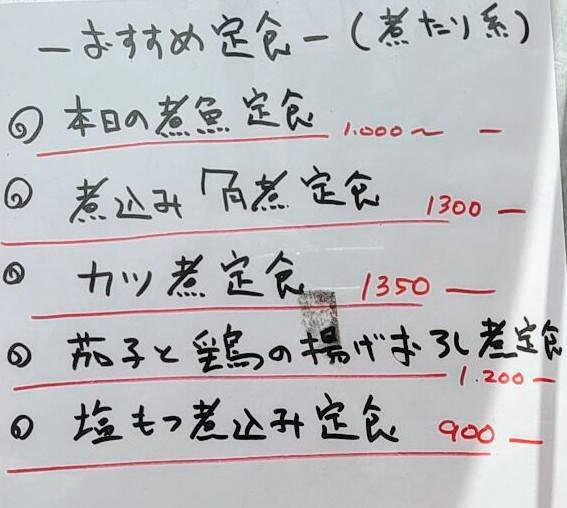 ーおすすめ定食ー(煮たり系)
本日の煮魚定食 1.000〜 ー
煮込み角煮定食 1300 ー
カツ煮定食 1350 ー
茄子と鶏の揚げおろし煮定食
1.200 ー
塩もつ煮込み定食 900 ー